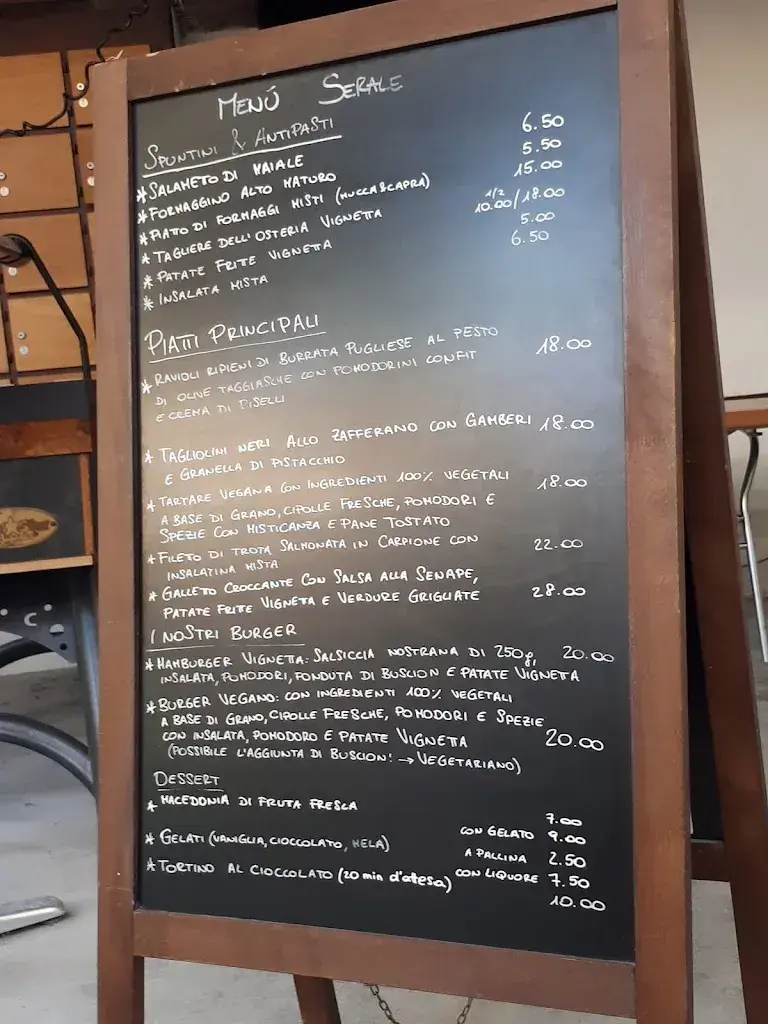 MENÚ SERALE
SPUNTINI & ANTIPASTI
* SALAMETO DI MAIALE 6.50
* FORMAGGINO ALTO MATURO 5.50
* PIATO DI FORMAGGI MISTI (MUCCA&CAPRA) 15.00
* TAGLIERE DELL'OSTERIA VIGNETTA 1/2 10.00/18.00
* PATATE FRITE VIGNETTA 5.00
* INSALATA MISTA 6.50
PIATTI PRINCIPALI
* RAVIOLI RIPIENI DI BURRATA PUGLIESE AL PESTO 18.00
DI OLIVE TAGGIASCHE CON POMODORINI CONFIT
E CREMA DI PISELLI
* TAGLIOLINI NERI ALLO ZAFFERANO CON GAMBERI 18.00
E GRANELLA DI PISTACCHIO
* TARTARE VEGANA CON INGREDIENTI 100% VEGETALI 18.00
A BASE DI GRANO, CIPOLLE FRESCHE, POMODORI E
SPEZIE CON MISTICANZA E PANE TOSTATO
* FILETO DI TROTA SALMONATA IN CARPIONE CON 22.00
INSALATINA MISTA
* GALLETO CROCCANTE CON SALSA ALLA SENAPE,
PATATE FRITE VIGNETTA E VERDURE GRIGLIATE 28.00
I NOSTRI BURGER
* HAMBURGER VIGNETTA: SALSICCIA NOSTRANA DI 250g, 20.00
INSALATA, POMODORI, FONDUTA DI BUSCION E PATATE VIGNETTA
* BURGER VEGANO: CON INGREDIENTI 100% VEGETALI
A BASE DI GRANO, CIPOLLE FRESCHE, POMODORI E SPEZIE
CON INSALATA, POMODORO E PATATE VIGNETTA 20.00
(POSSIBILE L'AGGIUNTA DI BUSCION! → VEGETARIANO)
DESSERT
* MACEDONIA DI FRUTA FRESCA 7.00
CON GELATO 9.00
* GELATI (VANIGLIA, CIOCCOLATO, MELA) A PALLINA 2.50
CON LIQUORE 7.50
* TORTINO AL CIOCCOLATO (20 min d'atesa) 10.00